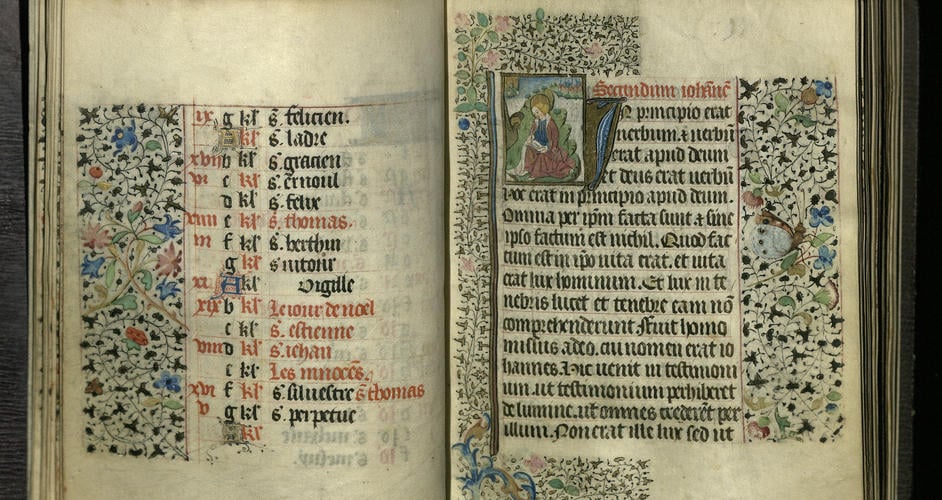 ix g kl' s. felicien.
A kl' s. ladre
xvii b kl' s. gracien
vi c kl' s. ernoul
d kl' s. felix
xiiii e kl' s. thomas.
iii f kl' s. berthin
g kl' s uitour
xi A kl' Vigille
xix b kl' Le iour de noel
c kl' s. estienne
viii d kl' s. iehan
e kl' Les innocēs.
xvi f kl' s. siluestre s thomas
v g kl' s. perpetue
A kl'
Secundum iohānē
IN principio erat
uerbum. & uerbū
erat apud deum
et deus erat uerbū
hoc erat in principio apud deum.
Omnia per ip̄m facta sunt & sine
ipso factum est nichil. Quod fac
tum est in ip̄o uita erat. et uita
erat lux hominum. Et lux in te
nebris lucet et tenebre eam nō
comprehenderunt. Fuit homo
missus a deo. cui nomen erat io
hannes. Hic uenit in testimoni
um. ut testimonium perhiberet
de lumine. ut omnes crederēt per
illum. Non erat ille lux sed ut